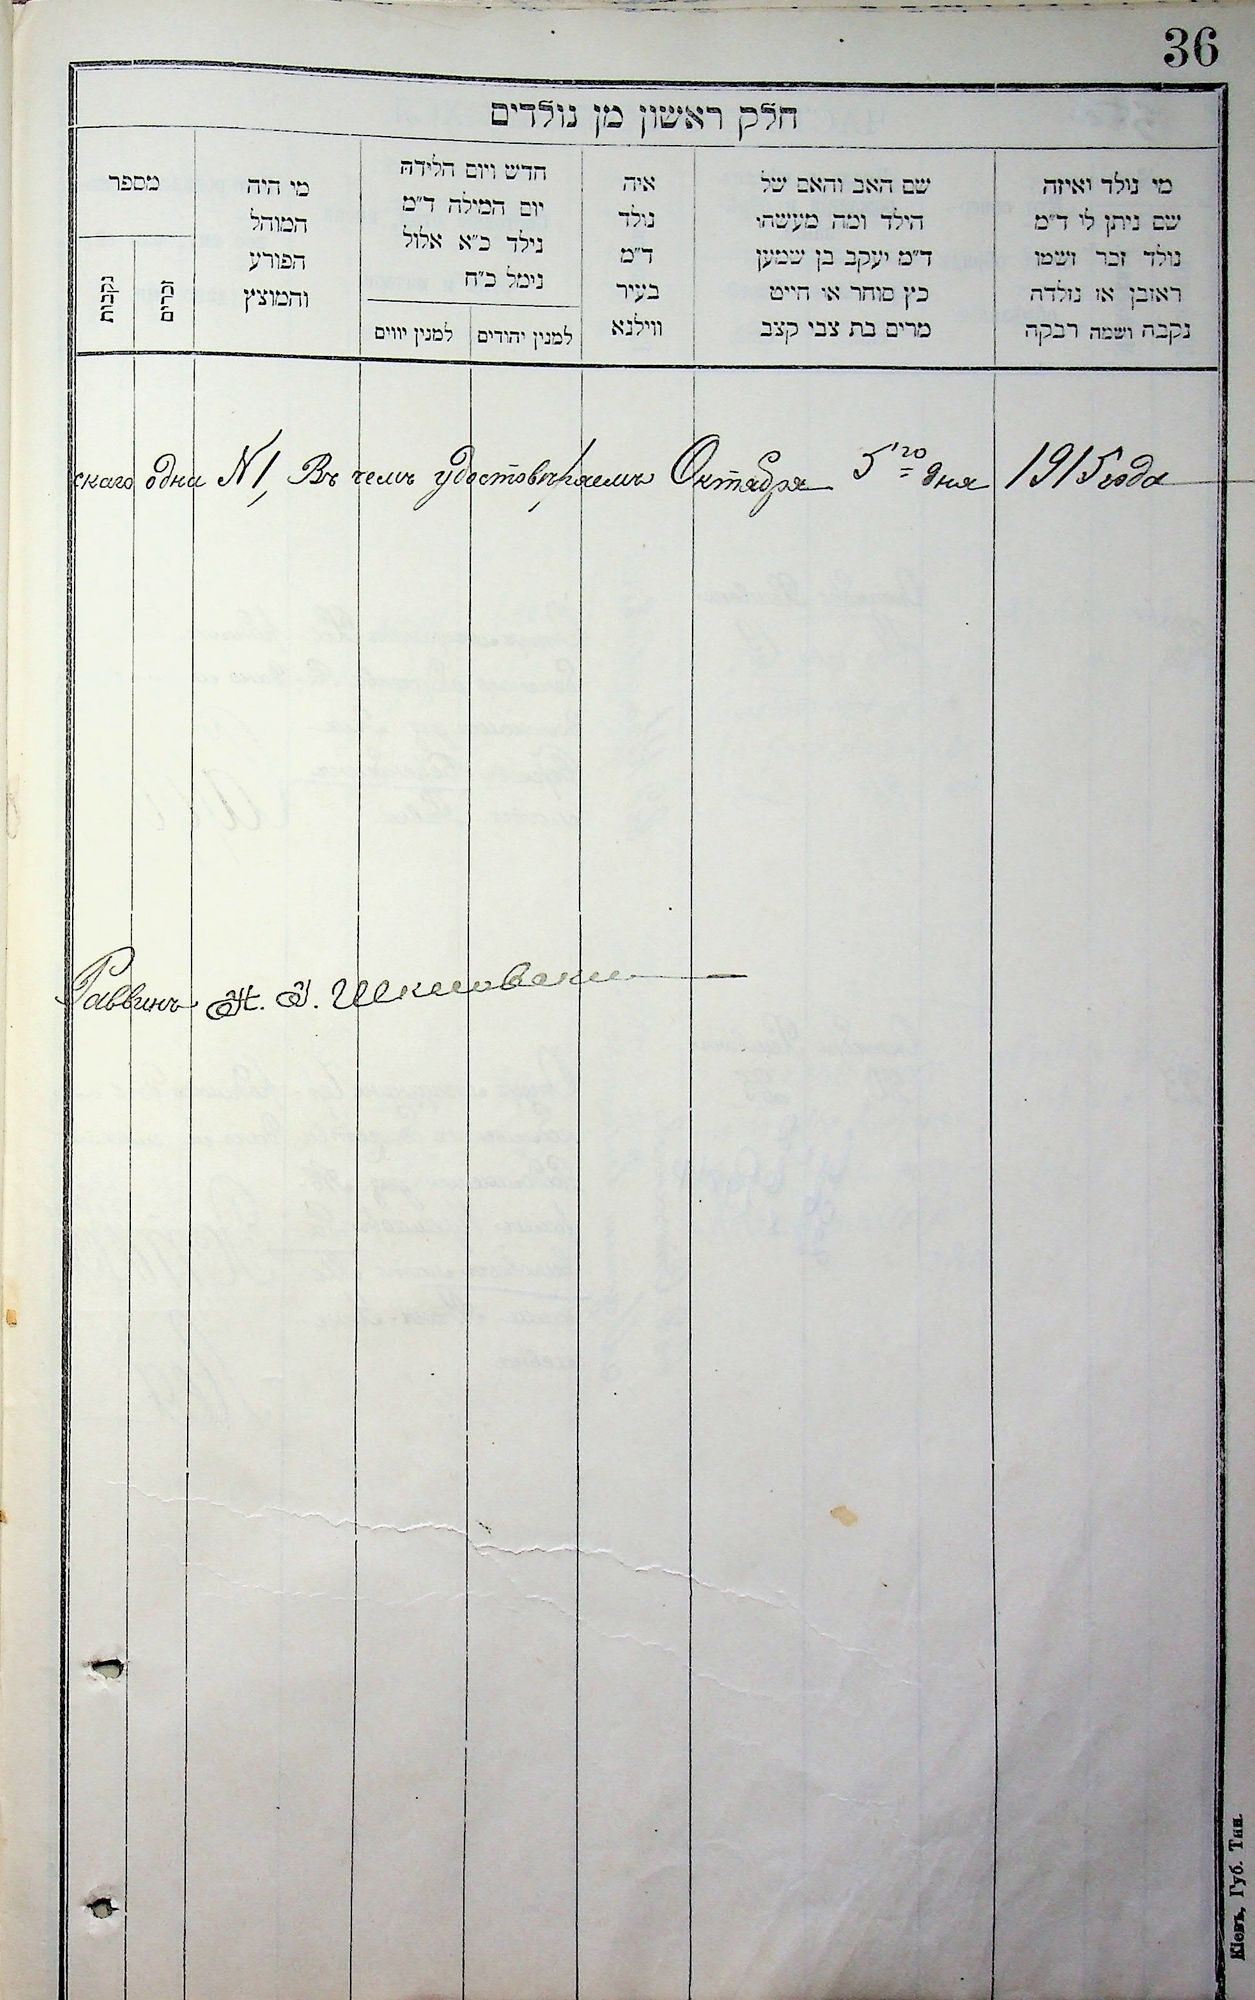 36
חלק ראשון מן נולדים
מי נולד ואיזה
שם ניתן לו ד״מ
נולד זכר ושמו
ראובן או נולדה
נקבה ושמה רבקה
שם האב והאם של
הילד ומה מעשהו
ד״מ יעקב בן שמעון
כץ סוחר או חייט
מרים בת צבי קצב
איה
נולד
ד״מ
בעיר
ווילנא
חדש ויום הלידה
יום המילה ד״מ
נילד כ״א אלול
נימל כ״ח
למנין יהודים
למנין יווים
מי היה
המוהל
הפורע
והמוצץ
מספר
זכרים
נקבות
скаго одна №1, Въ чемъ удостовѣряемъ Октября 5го дня 1915 года
Раввинъ
Кіевъ, Губ. Тип.